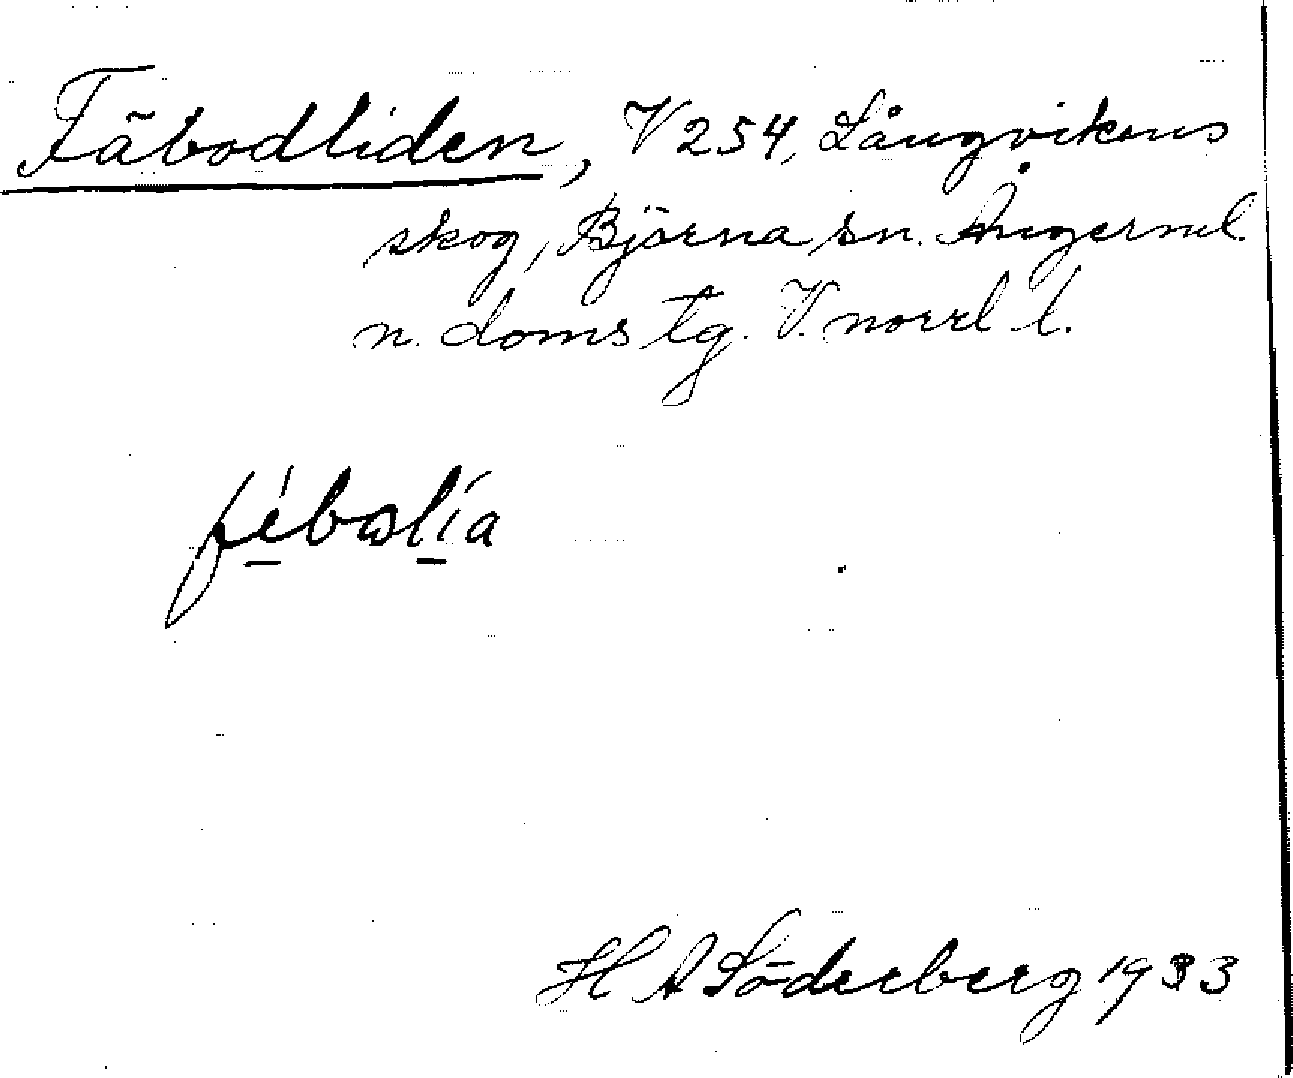 Fäbodliden, V 254, Långvikens
skog, Björna sn. Ångerml.
n. doms tg. V. norrl l.
fébolía
H A Söderberg 1933